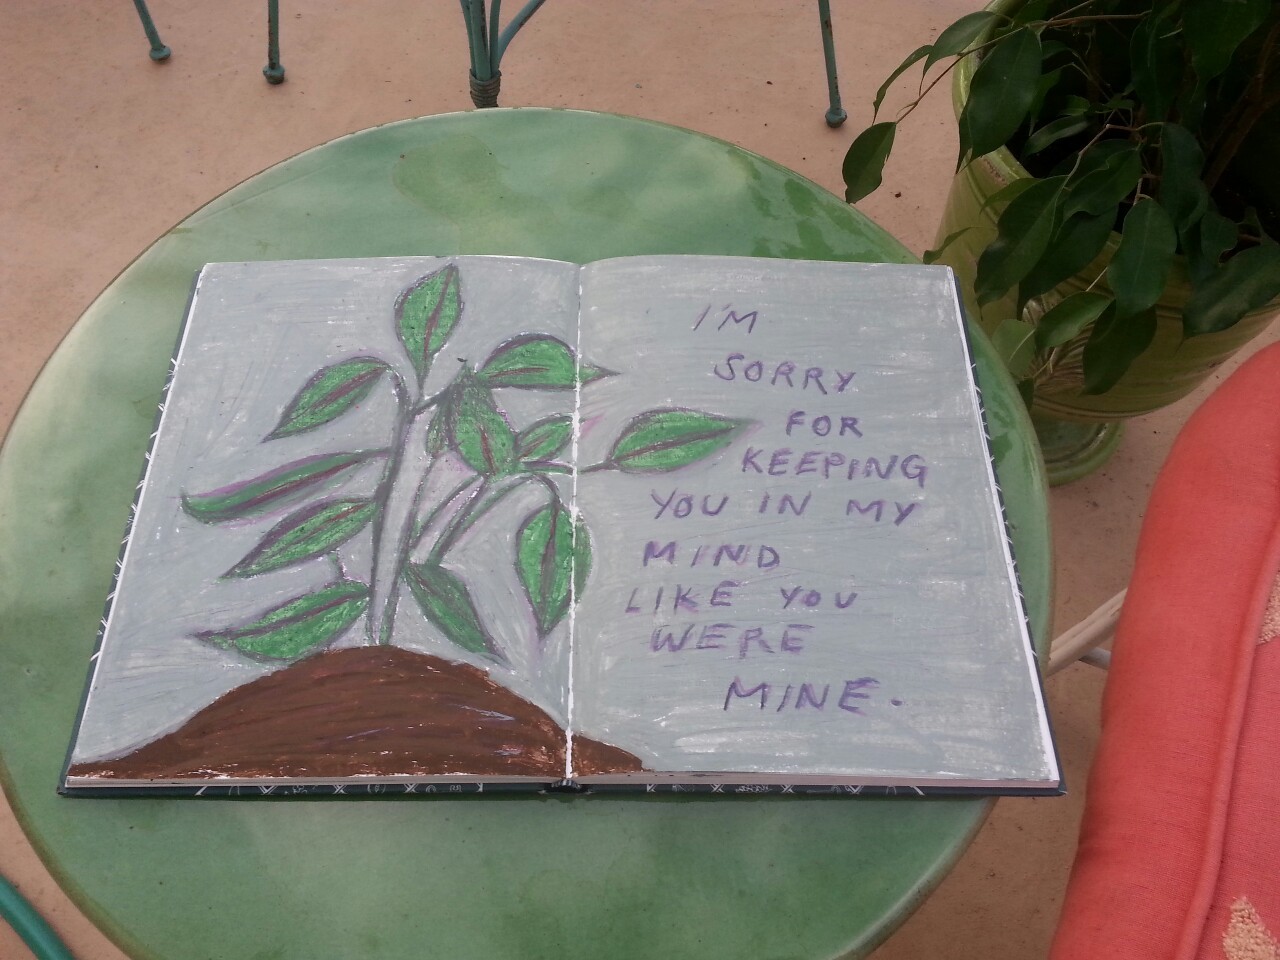 I'M
SORRY
FOR
KEEPING
YOU IN MY
MIND
LIKE YOU
WERE
MINE.